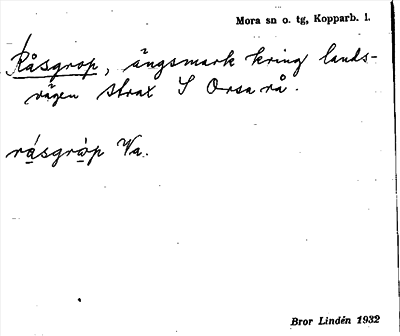 Mora sn o. tg, Kopparb. l.
Råsgrop, ängsmark kring lands-
vägen strax S Orsa rå.
råsgròp Va.
Bror Lindén 1932